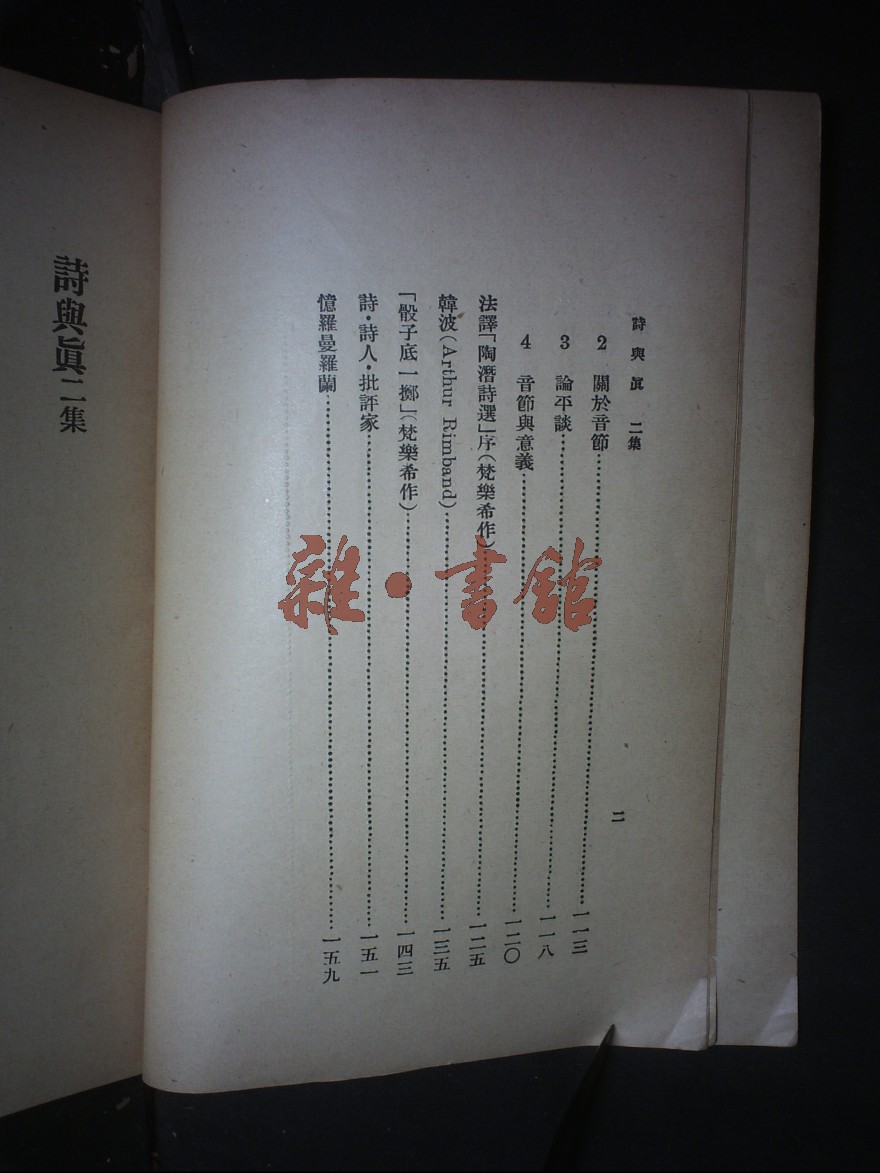 詩與眞 二集
二
2 關於音節……一一三
3 論平談……一一八
4 音節與意義……一二〇
法譯「陶潛詩選」序(梵樂希作)……一二五
韓波(Arthur Rimband)……一三五
「骰子底一擲」(梵樂希作)……一四三
詩·詩人·批評家……一五一
憶羅曼羅蘭……一五九
詩與眞二集
雜·書館